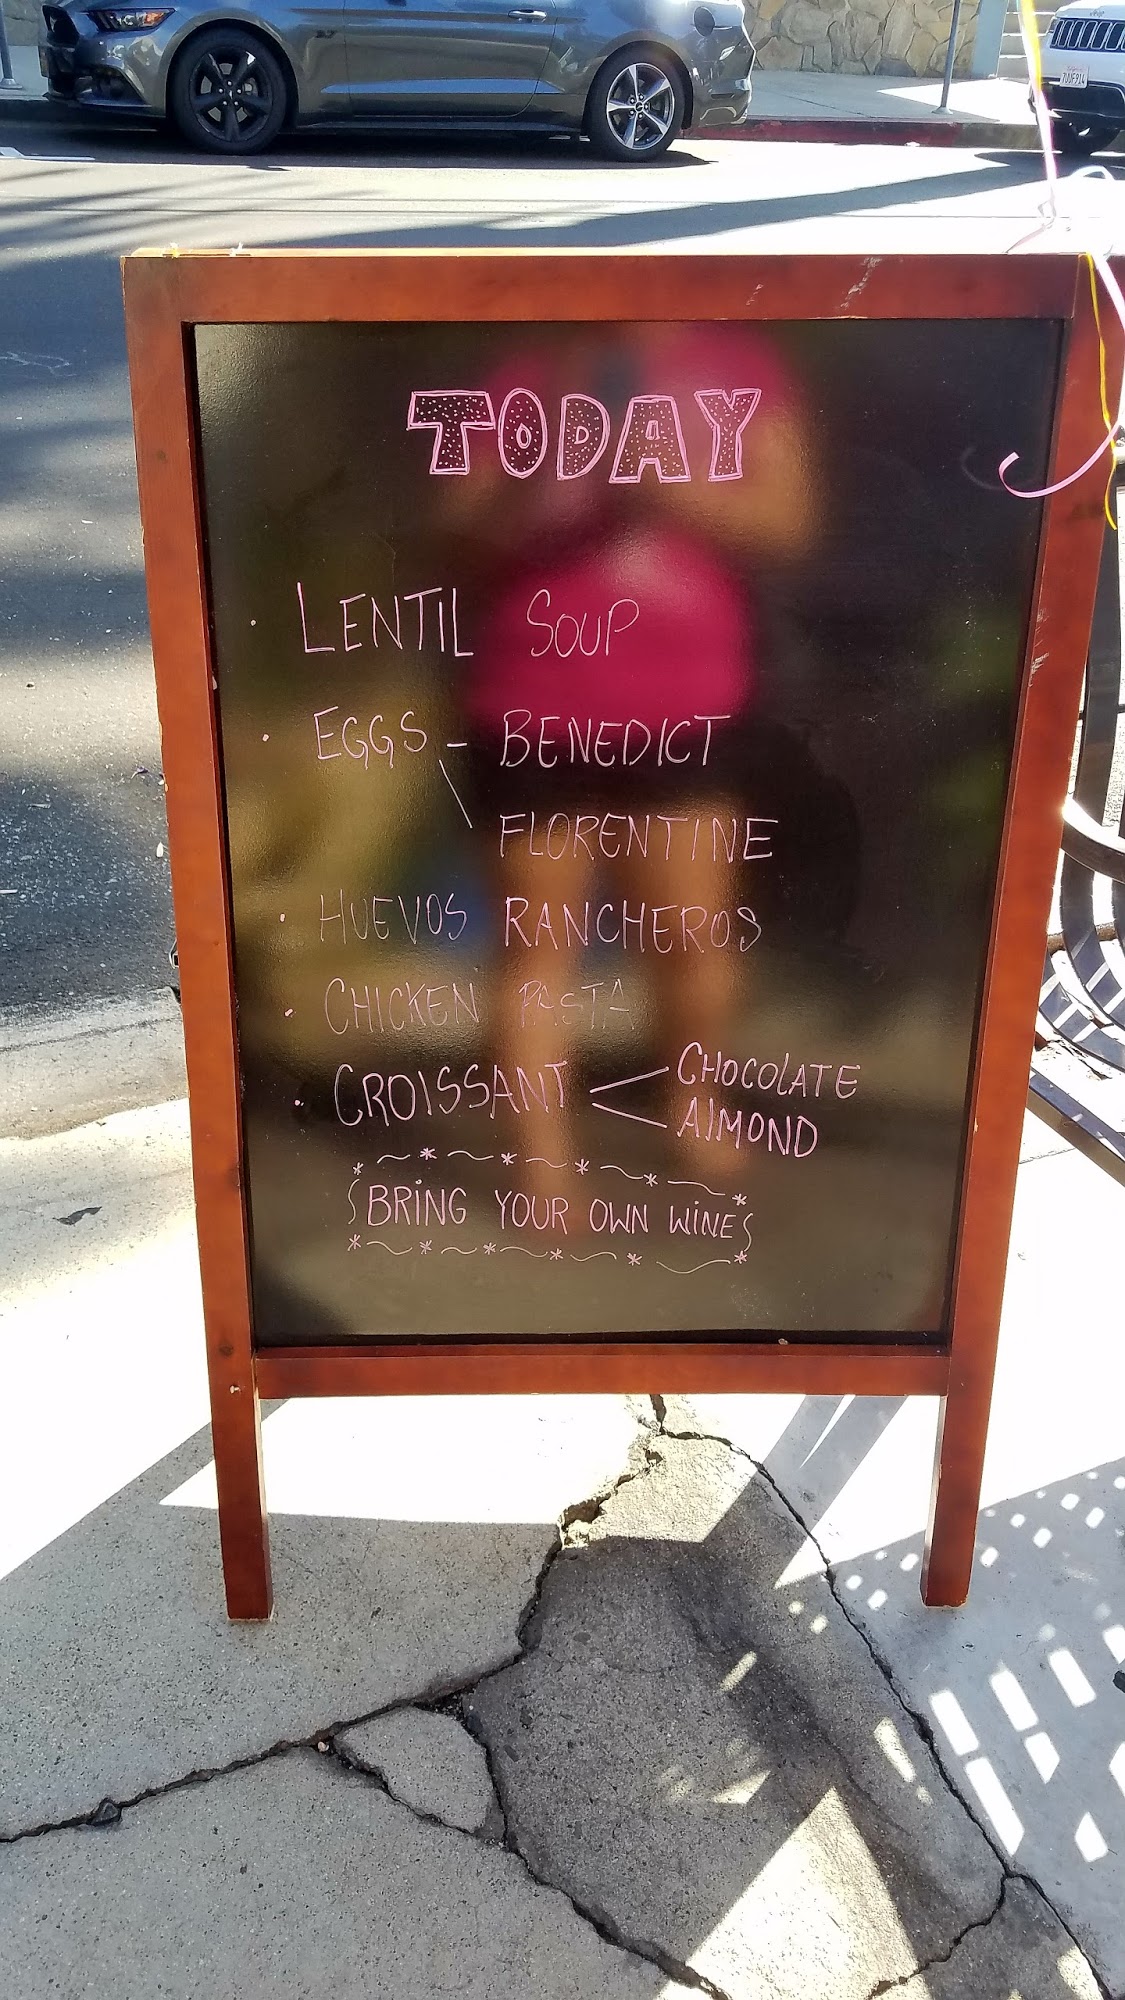 TODAY
· LENTIL SOUP
· EGGS - BENEDICT
\ FLORENTINE
· HUEVOS RANCHEROS
· CHICKEN PASTA
· CROISSANT < CHOCOLATE
AlMOND
BRING YOUR OWN WINE